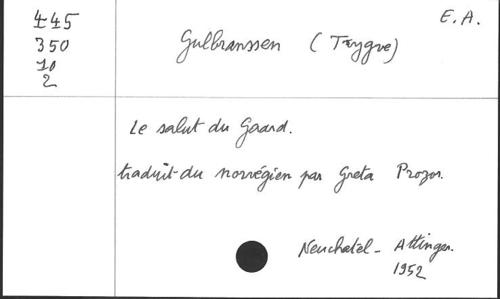 445
350
10
2
E. A.
Gulbranssen (Trygve)
Le salut du Gaard.
traduit du norvégien par Greta Prozor.
Neuchatel - Attinger.
1952